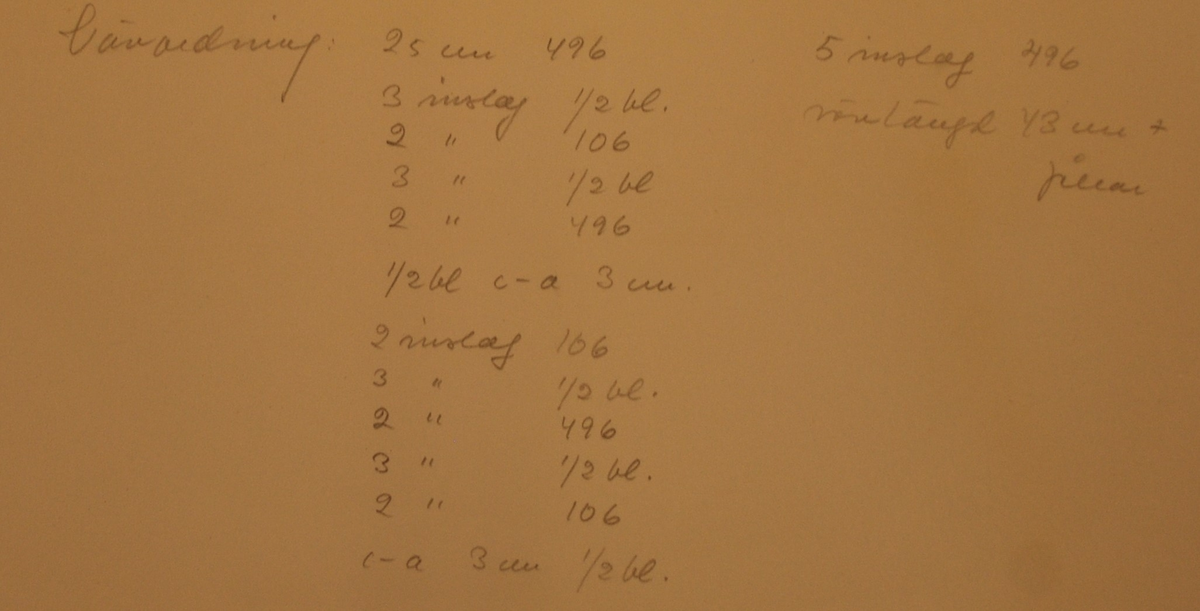 Vävordning: 25 cm 496
3 inslag 1/2 bl.
2 " 106
3 " 1/2 bl
2 " 496
1/2 bl c-a 3 cm.
2 inslag 106
3 " 1/2 bl.
2 " 496
3 " 1/2 bl.
2 " 106
c-a 3 cm 1/2 bl.
5 inslag 496
vävlängd 43 cm +
fållar